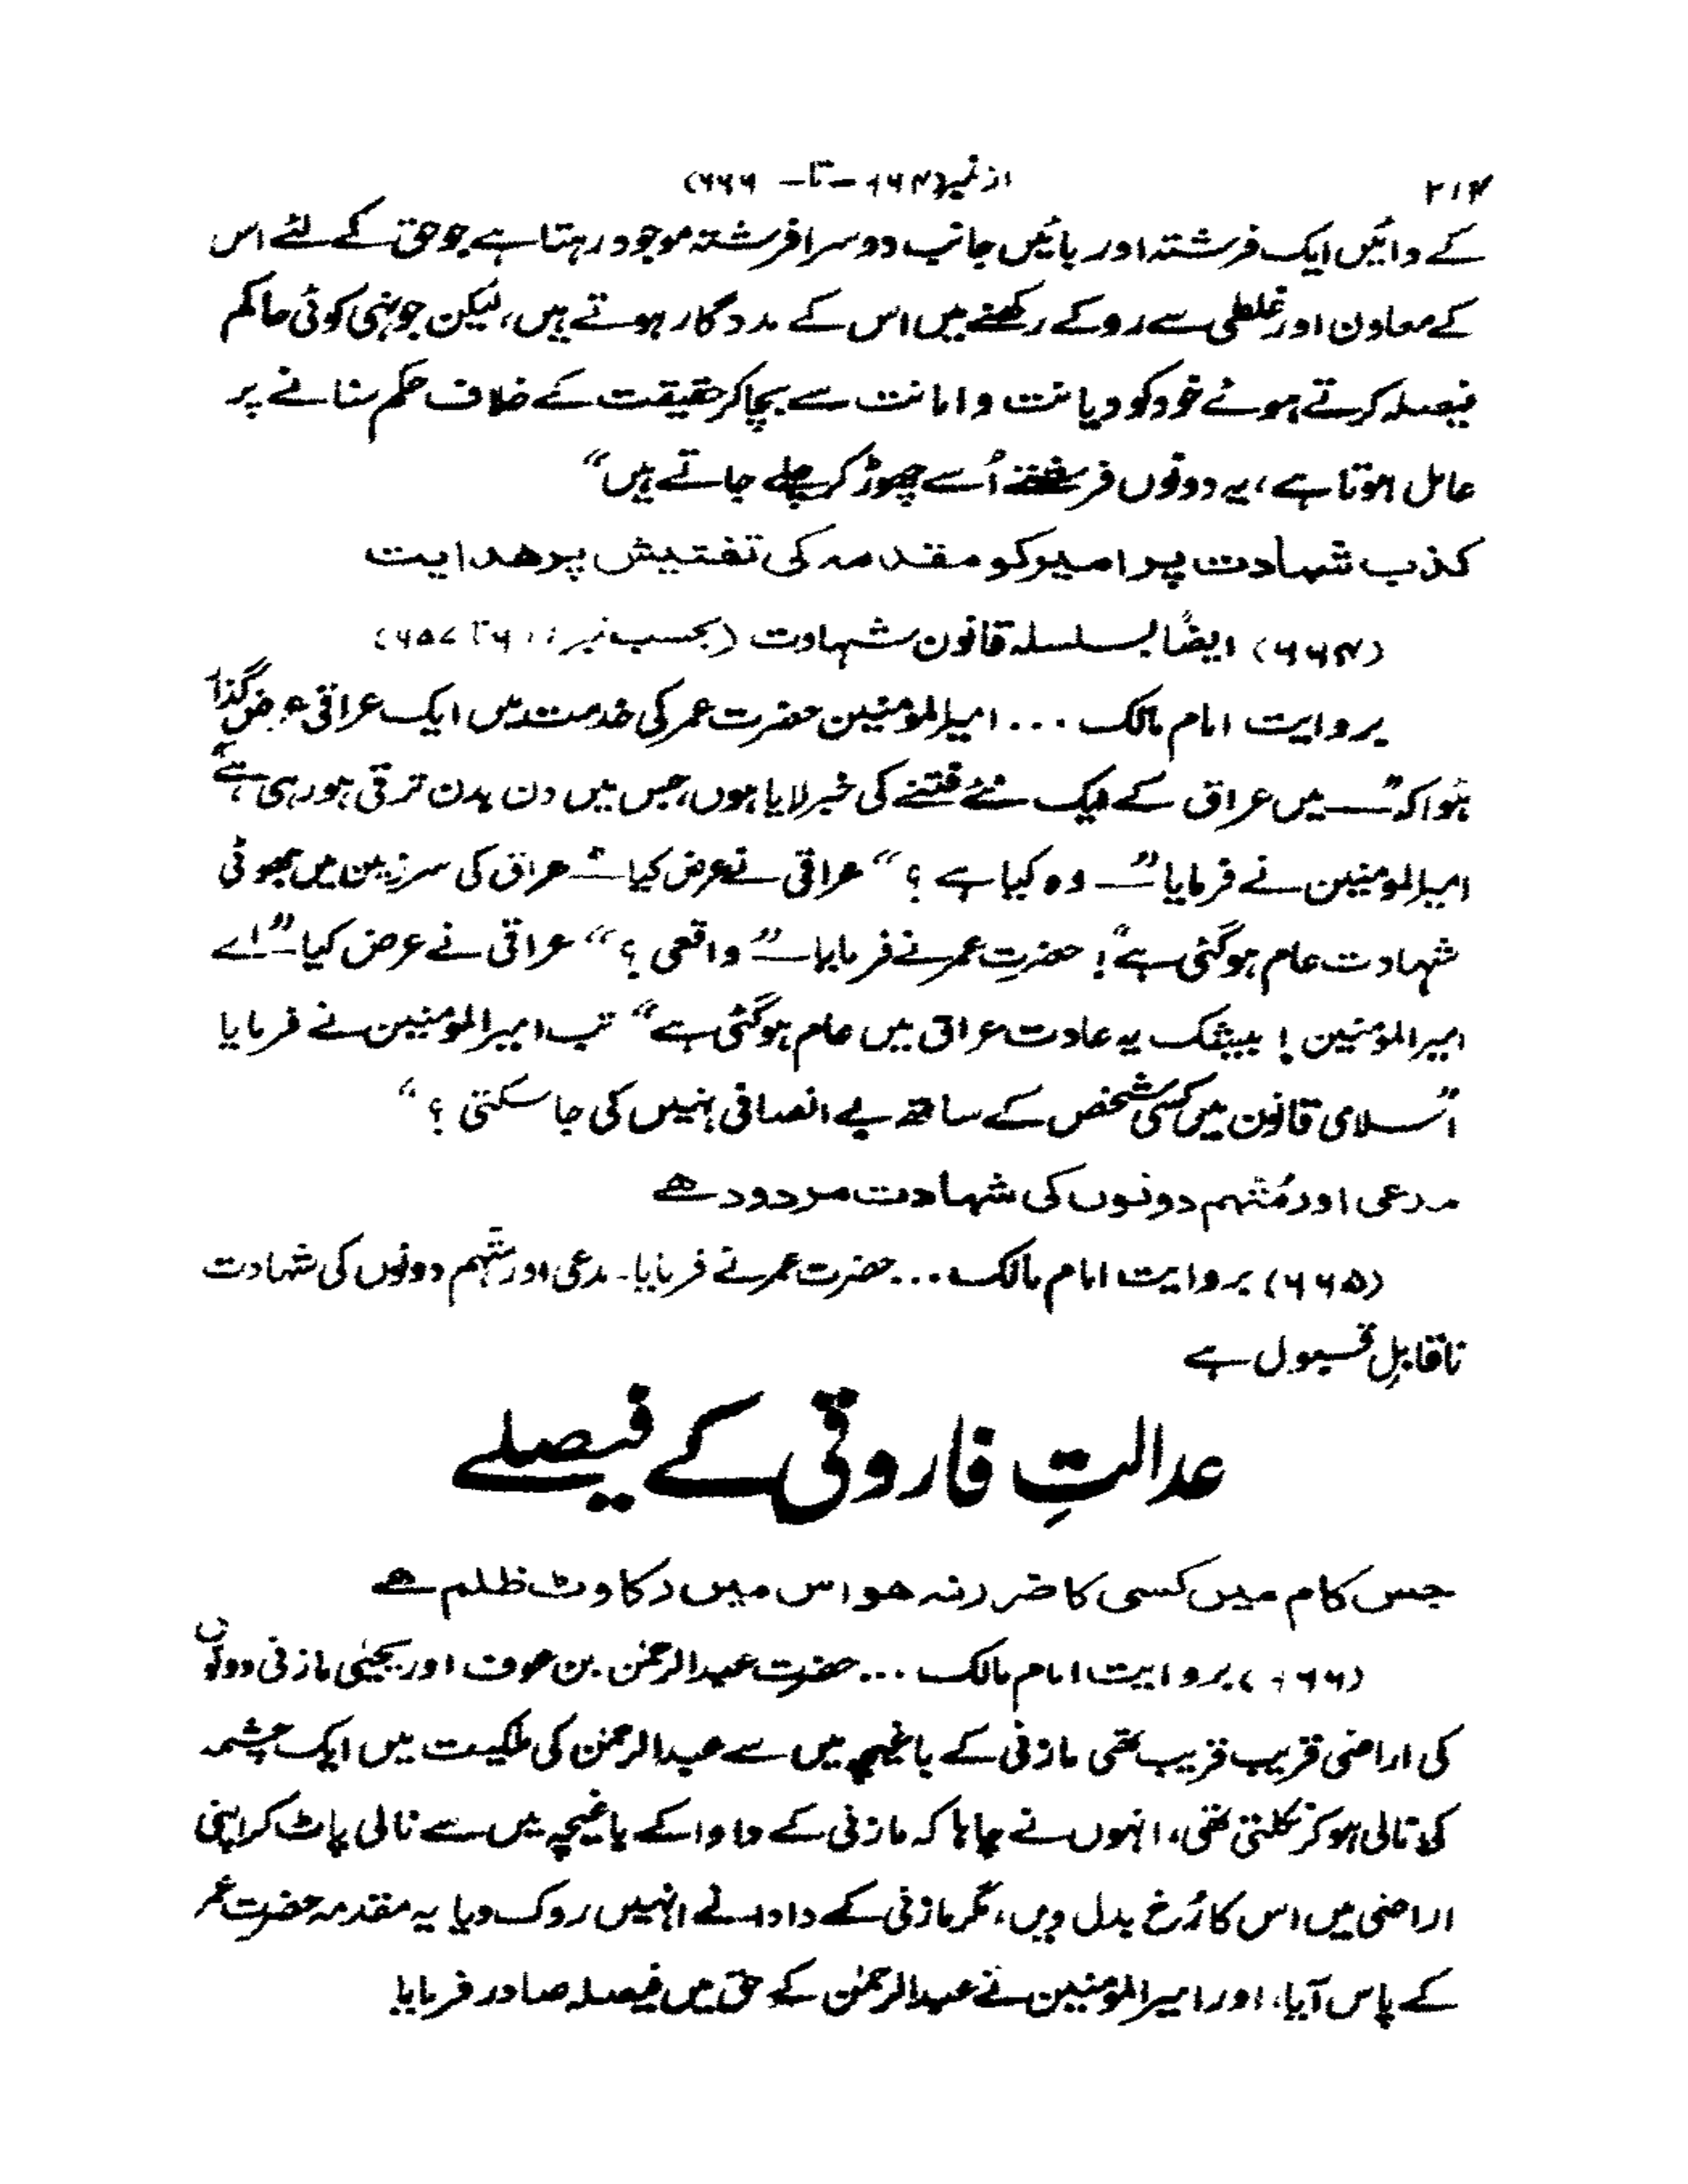 ۲۱۴ از نمبر (۶۶۴ -تا- ۶۶۶)
کے دائیں ایک فرشتہ اور بائیں جانب دوسرا فرشتہ موجود رہتا ہے جو حق کے لئے اس
کے معاون اور غلطی سے روکے رکھنے میں اس کے مددگار ہوتے ہیں، لیکن جونہی کوئی حاکم
فیصلہ کرتے ہوئے خود کو دیانت و امانت سے بچا کر حقیقت کے خلاف حکم سنانے پر
عامل ہوتا ہے، یہ دونوں فرشتے اُسے چھوڑ کر چلے جاتے ہیں“
کذب شہادت پر امیر کو مقدمہ کی تفتیش پر ھدایت
(۶۶۴) ایضاً بسلسلہ قانون شہادت (بحسب نمبر ۶۵۷)
بروایت امام مالک ... امیرالمؤمنین حضرت عمر کی خدمت میں ایک عراقی عرض گذار
ہُوا کہ ”میں عراق کے ایک نئے فتنے کی خبر لایا ہوں، جس میں دن بدن ترقی ہو رہی ہے“
امیرالمومنین نے فرمایا ”وہ کیا ہے ؟“ عراقی نے عرض کیا ”عراق کی سرزمین میں جھوٹی
شہادت عام ہوگئی ہے“! حضرت عمر نے فرمایا ”واقعی ؟“ عراقی نے عرض کیا ”اے
امیرالمؤمنین ! بیشک یہ عادت عراق میں عام ہوگئی ہے“ تب امیرالمومنین نے فرمایا
”اسلامی قانون میں کسی شخص کے ساتھ بے انصافی نہیں کی جا سکتی ؟“
مدعی اور مُتہم دونوں کی شہادت مردود ھے
(۶۶۵) بروایت امام مالک ... حضرت عمر نے فرمایا۔ مدعی اور متّہم دونوں کی شہادت
ناقابلِ قبول ہے
عدالتِ فاروقی کے فیصلے
جس کام میں کسی کا ضرر نہ ھو اس میں رکاوٹ ظلم ھے
(۶۶۶) بروایت امام مالک ... حضرت عبدالرحمٰن بن عوف اور یحییٰ مازنی دونوں
کی اراضی قریب قریب تھی مازنی کے باغیچہ میں سے عبدالرحمٰن کی ملکیت میں ایک چشمہ
کی نالی ہو کر نکلتی تھی، انہوں نے چاہا کہ مازنی کے دادا کے باغیچہ میں سے نالی پاٹ کر اپنی
اراضی میں اس کا رُخ بدل دیں، مگر مازنی کے دادا نے انہیں روک دیا یہ مقدمہ حضرت عمر
کے پاس آیا، اور امیرالمؤمنین نے عبدالرحمٰن کے حق میں فیصلہ صادر فرمایا